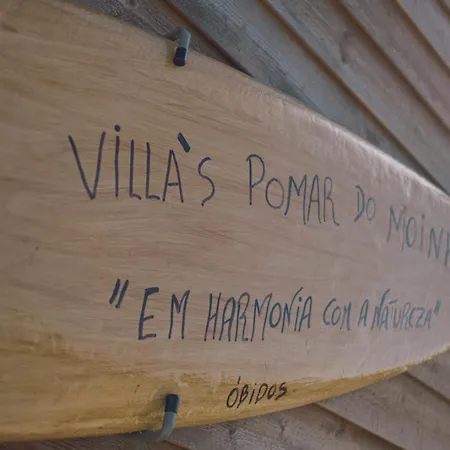 VILLA`S POMAR DO MOINH
"EM HARMONIA COM A NATUREZA"
ÓBIDOS